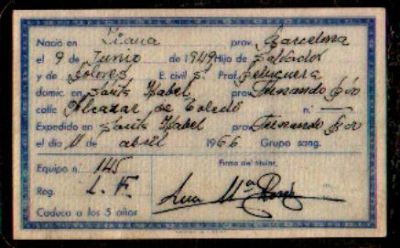 Nació en Viana prov. Barcelona
el 9 de Junio de 1949 Hijo de Salvador
y de Dolores E. civil S. Prof. Peluquera
domic. en Santa Isabel prov. Fernando Póo
calle Alcazar de Toledo n.º —
Expedido en Santa Isabel prov. Fernando Póo
el día 11 de abril 1966 Grupo sang.
Equipo n.º 145 Firma del titular,
Reg. L. F.
Ana Mª
Caduca a los 5 años